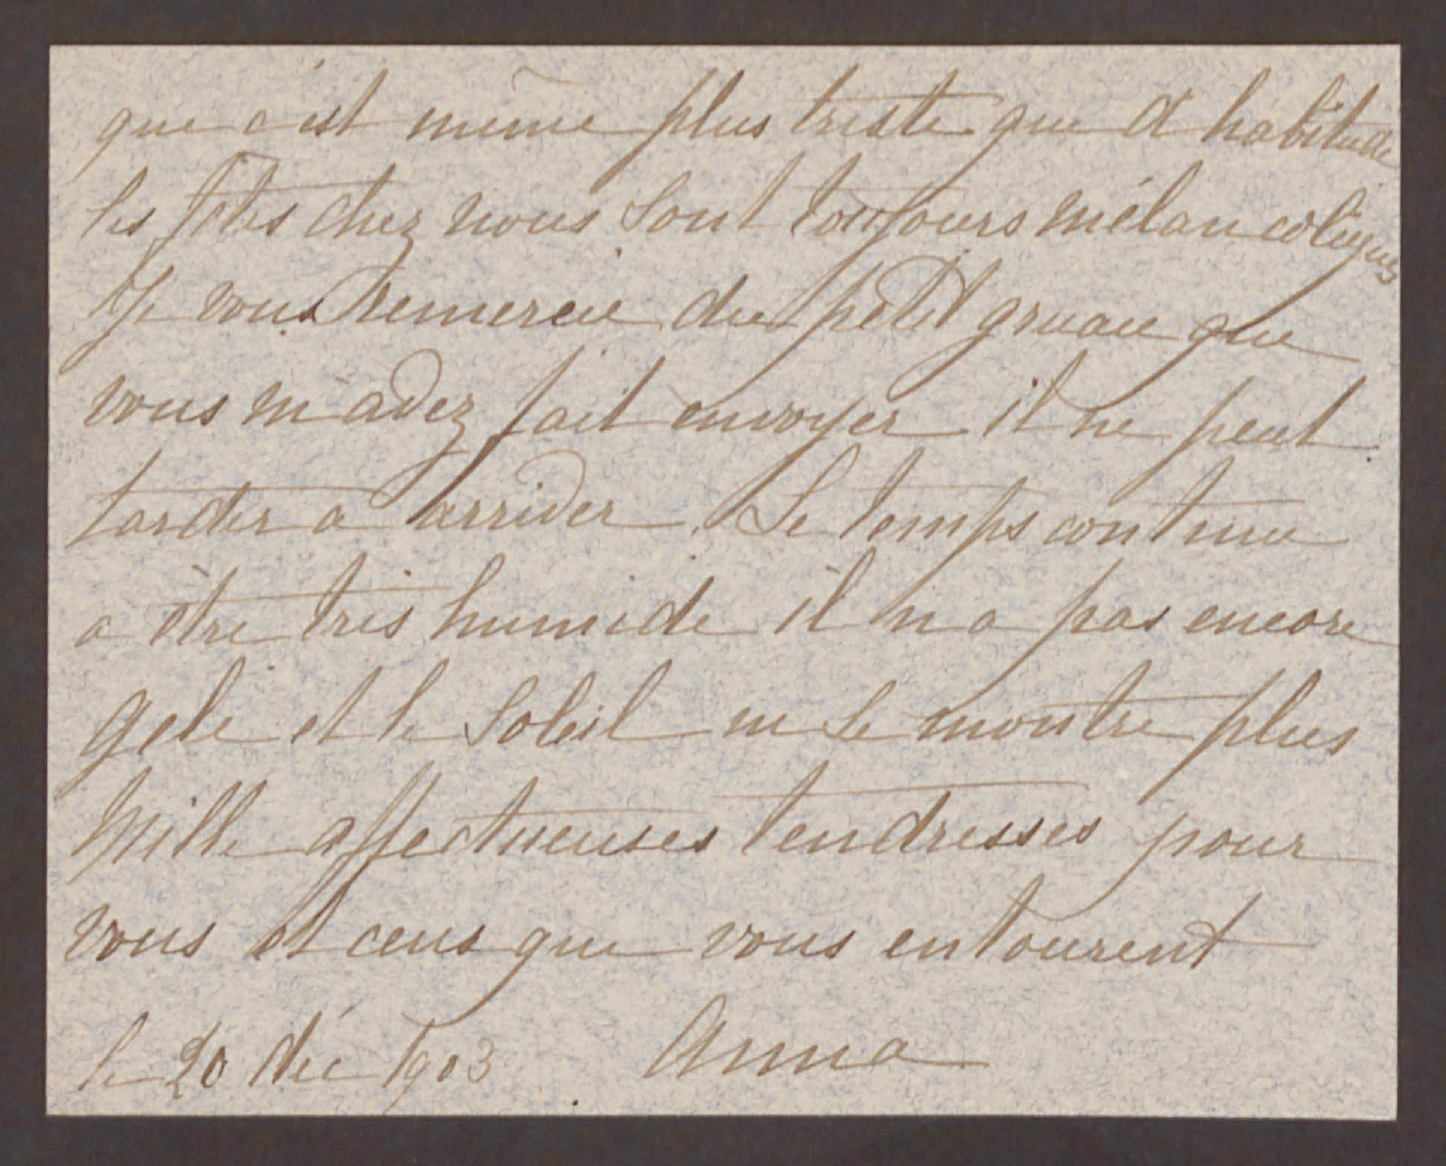 que c'est même plus triste que d'habitude
les fêtes chez nous sont toujours mélancoliques
Je vous remercie du petit gruau que
vous m'avez fait envoyer il ne peut
tarder a arriver. Le temps continue
a être très humide il n a pas encore
gelé et le soleil ne se montre plus
Mille affectueuses tendresses pour
vous et ceux que vous entourent
le 20 déc 1903 Anna